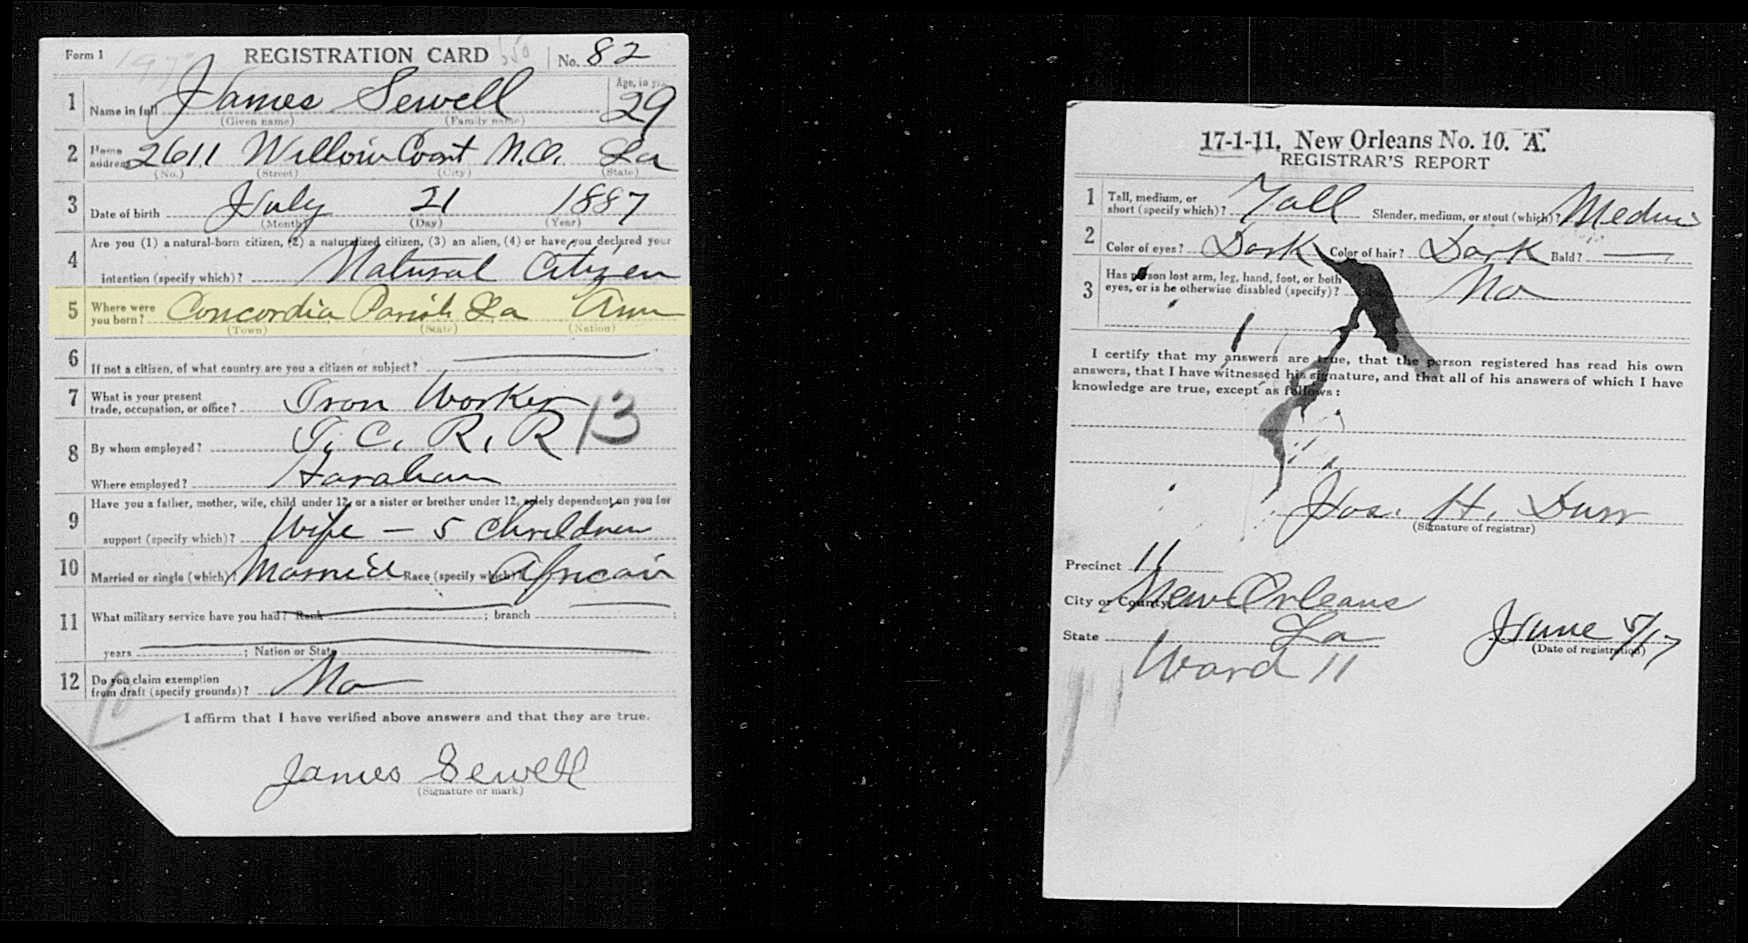 Form 1 REGISTRATION CARD No. 82
1 Name in full James Sewell Age, in yrs. 29
(Given name) (Family name)
2 Home address 2611 Willow Court N.O. La
(No.) (Street) (City) (State)
3 Date of birth July 21 1887
(Month) (Day) (Year)
Are you (1) a natural-born citizen, (2) a naturalized citizen, (3) an alien, (4) or have you declared your
4 intention (specify which)? Natural Citizen
5 Where were you born? Concordia Parish La Am
(Town) (State) (Nation)
6 If not a citizen, of what country are you a citizen or subject?
7 What is your present trade, occupation, or office? Iron Worker
8 By whom employed? I. C. R. R 13
Where employed? Harahan
Have you a father, mother, wife, child under 12, or a sister or brother under 12, solely dependent on you for
9 support (specify which)? Wife — 5 Children
10 Married or single (which)? Married Race (specify which)? African
11 What military service have you had? Rank ; branch ;
years ; Nation or State
12 Do you claim exemption from draft (specify grounds)? No
I affirm that I have verified above answers and that they are true.
James Sewell
(Signature or mark)
17-1-11. New Orleans No. 10. A.
REGISTRAR'S REPORT
1 Tall, medium, or short (specify which)? Tall Slender, medium, or stout (which)? Medium
2 Color of eyes? Dark Color of hair? Dark Bald? —
3 Has person lost arm, leg, hand, foot, or both eyes, or is he otherwise disabled (specify)? No
I certify that my answers are true, that the person registered has read his own
answers, that I have witnessed his signature, and that all of his answers of which I have
knowledge are true, except as follows:
Jos. H. Durr
(Signature of registrar)
Precinct 11
City or County New Orleans
State La June 5/17
(Date of registration)
Ward 11